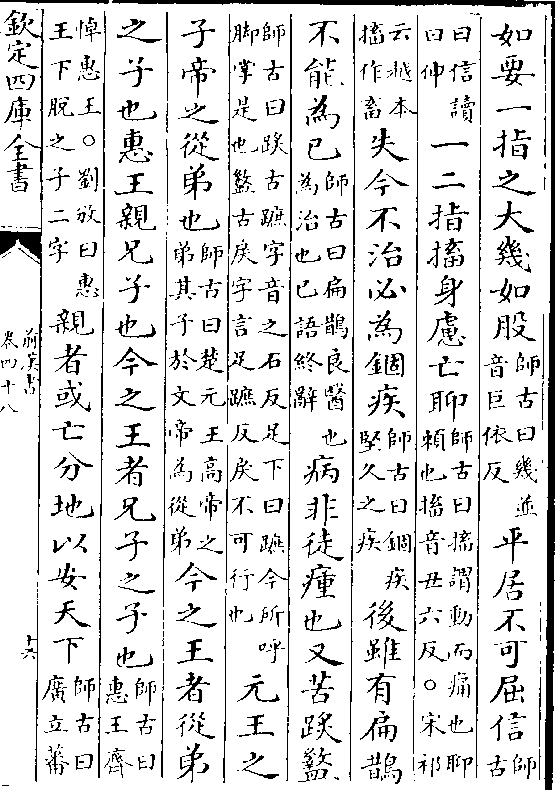 如要一指之大幾如股師古曰幾並音巨依反平居不可屈信師古
曰信讀曰伸一二指搐身慮亡聊師古曰搐謂動而痛也聊賴也搐音丑六反○宋祁
云越本搐作畜失今不治必為錮疾師古曰錮疾堅久之疾後雖有扁鵲
不能為已師古曰扁鵲良醫也為治也已語終辭病非徒瘇也又苦盭
師古曰古蹠字音之石反足下曰蹠今所呼脚掌是也盭古戾字言足蹠反戾不可行也元王之
子帝之從弟也師古曰楚元王高帝之弟其子於文帝為從弟今之王者從弟
之子也惠王親兄子也今之王者兄子之子也師古曰惠王齊
悼惠王○劉攽曰惠王下脫之子二字親者或亡分地以安天下師古曰廣立蕃
欽定四庫全書
前漢書
卷四十八
十六